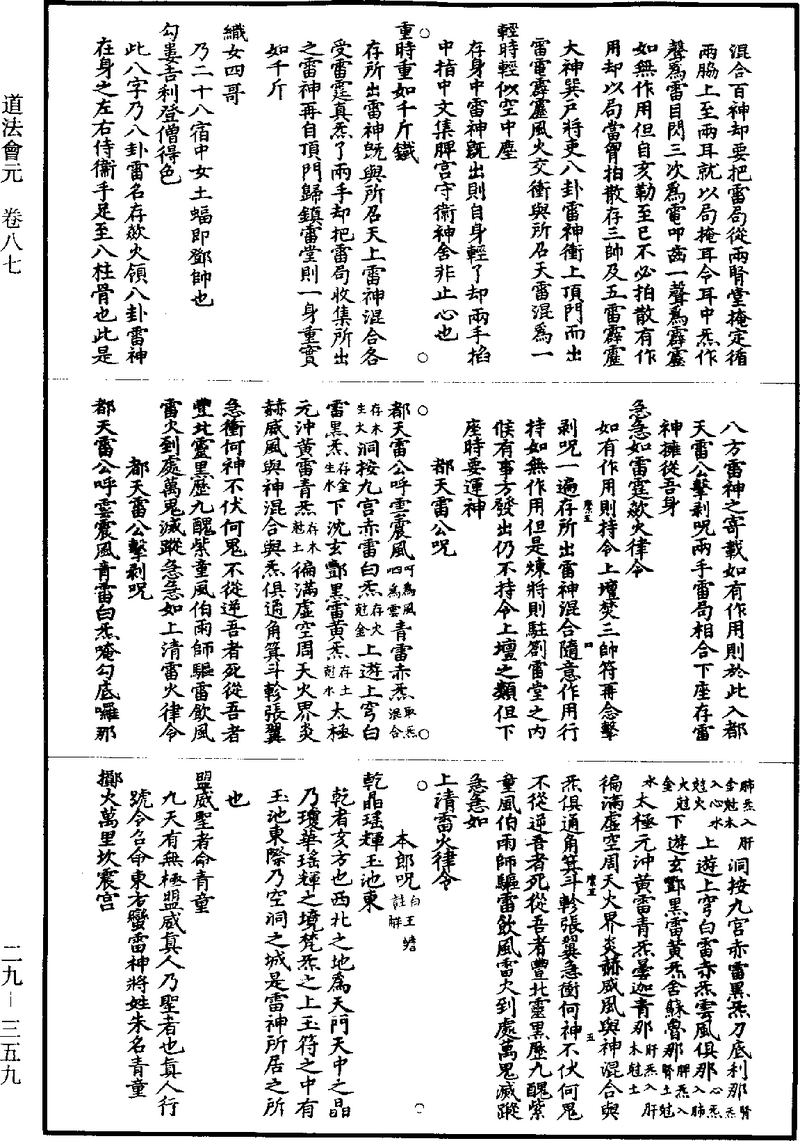 道法會元 卷八七
混合百神却要把雷局從兩腎堂掩定循
兩脇上至兩耳就以局掩耳令耳中炁作
聲為雷目閃三次為電叩齒一聲為霹靂
如無作用但自亥勒至巳不必拍散有作
用却以局當胷拍散存三帥及五雷霹靂
大神巽戶將吏八卦雷神衝上頂門而出
雷電霹靂風火交衝與所召天雷混為一
輕時輕似空中塵
存身中雷神旣出則自身輕了却兩手掐
中指中文集脾宮守衛神舍非止心也
重時重如千斤鐵
存所出雷神旣與所召天上雷神混合各
受雷霆真炁了兩手却把雷局收集所出
之雷神再自頂門歸鎮雷堂則一身重實
如千斤
織女四哥
乃二十八宿中女土蝠即鄧帥也
勾婁吉利登僧得色
此八字乃八卦雷名存欻火領八卦雷神
在身之左右侍衛手足至八柱骨也此是
八方雷神之寄載如有作用則於此入都
天雷公擊剥呪兩手雷局相合下座存雷
神擁從吾身
急急如雷霆欻火律令
如有作用則持令上壇焚三帥符再念擊
剥呪一遍存所出雷神混合隨意作用行
持如無作用但是煉將則駐劄雷堂之内
候有事方發出仍不持令上壇之類但下
座時要運神
都天雷公呪
都天雷公呼雲震風呵為風呬為雲青雷赤炁取炁混合
存木生火洞按九宮赤雷白炁存火尅金上遊上穹白
雷黑炁存金生水下沈玄酆黑雷黄炁存土尅水太極
元沖黄雷青炁存木尅土徧滿虛空周天火界炎
赫威風與神混合與炁俱通角箕斗軫張翼
急衝何神不伏何鬼不從逆吾者死從吾者
豐北靈黑歷九醜紫童風伯雨師驅雷飲風
雷火到處萬鬼滅蹤急急如上清雷火律令
都天雷公擊剥呪
都天雷公呼雲震風青雷白炁唵勾底囉那
肺炁入肝金尅木洞按九宮赤雷黑炁刀底利那腎炁
入心水尅火上遊上穹白雷赤炁雲風俱那心炁入肺
火尅金下遊玄酆黑雷黄炁舍穌魯那脾炁入腎土尅
水太極元沖黄雷青炁曇迦青那肝炁入肝木尅土
徧滿虛空周天火界炎赫威風與神混合與
炁俱通角箕斗軫張翼急衝何神不伏何鬼
不從逆吾者死從吾者豐北靈黑歷九醜紫
童風伯雨師驅雷飲風雷火到處萬鬼滅蹤
急急如
上清雷火律令
本郎呪白玉蟾註解
乾晶瑶輝玉池東
乾者亥方也西北之地為天門天中之晶
乃瓊華瑶輝之境梵炁之上玉符之中有
玉池東際乃空洞之城是雷神所居之所
也
盟威聖者命青童
九天有無極盟威真人乃聖者也真人行
號令召命東方蠻雷神將姓朱名青童
擲火萬里坎震宮
二九—三五九